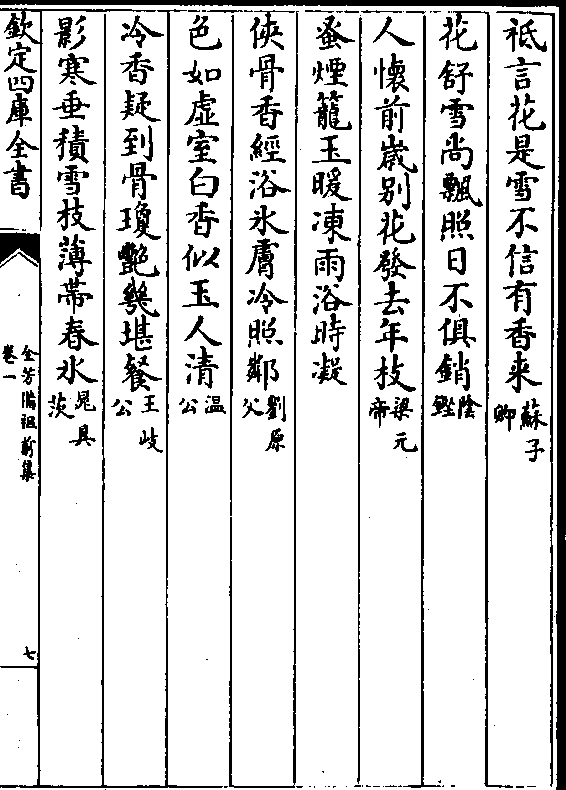 祗言花是雪不信有香来蘇子卿
花舒雪尚飄照日不俱銷陰鏗
人懷前歲别花發去年枝梁元帝
蚤煙籠玉暖凍雨浴時凝
俠骨香經浴氷膚冷照鄰劉原父
色如虚室白香似玉人清温公
冷香疑到骨瓊艷幾堪餐王岐公
影寒垂積雪枝薄帶春氷晁具茨
欽定四庫全書
全芳備祖前集
卷一
七